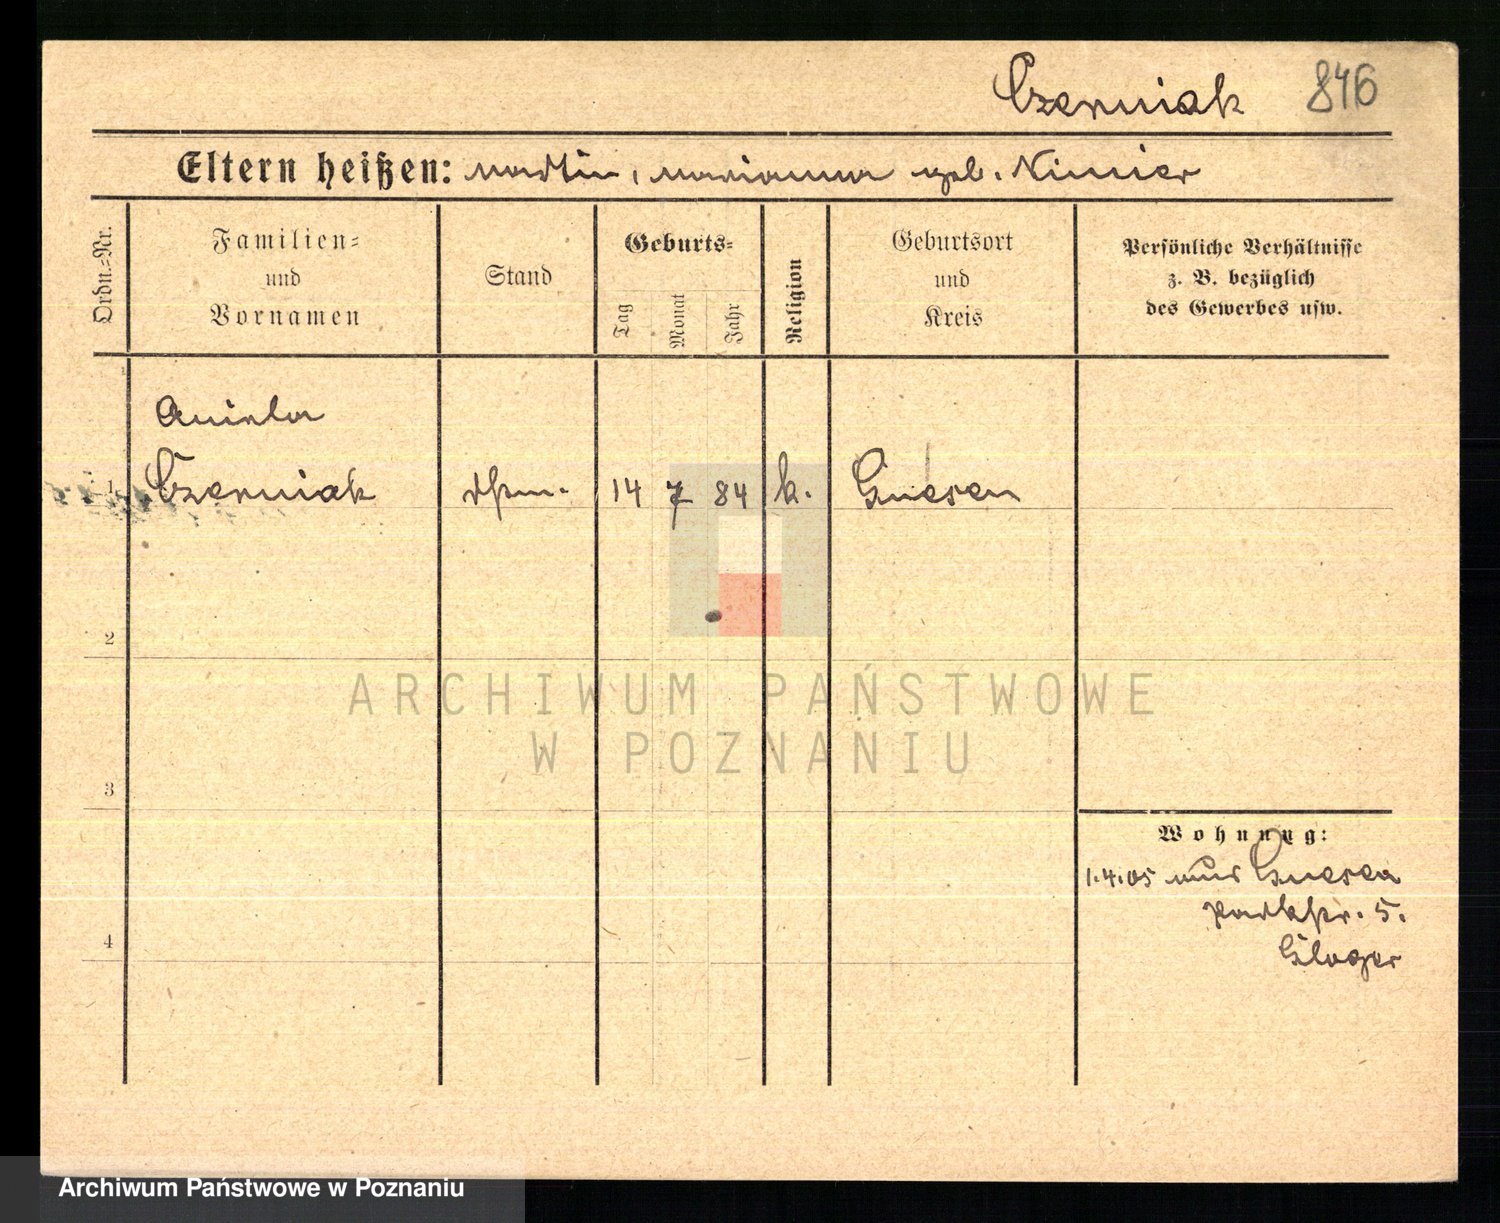 Czerniak 846
Eltern heißen: Martin, Marianna geb. Nimier
Ordn.-Nr.
Familien-
und
Vornamen
Stand
Geburts-
Tag
Monat
Jahr
Religion
Geburtsort
und
Kreis
Persönliche Verhältnisse
z. B. bezüglich
des Gewerbes usw.
Aniela
1 Czerniak 14 7 84 k. Gnesen
2
ARCHIWUM PAŃSTWOWE
W POZNANIU
3
Wohnung:
1.4.05 aus Gnesen
Parkstr. 5.
Gloger
4
Archiwum Państwowe w Poznaniu